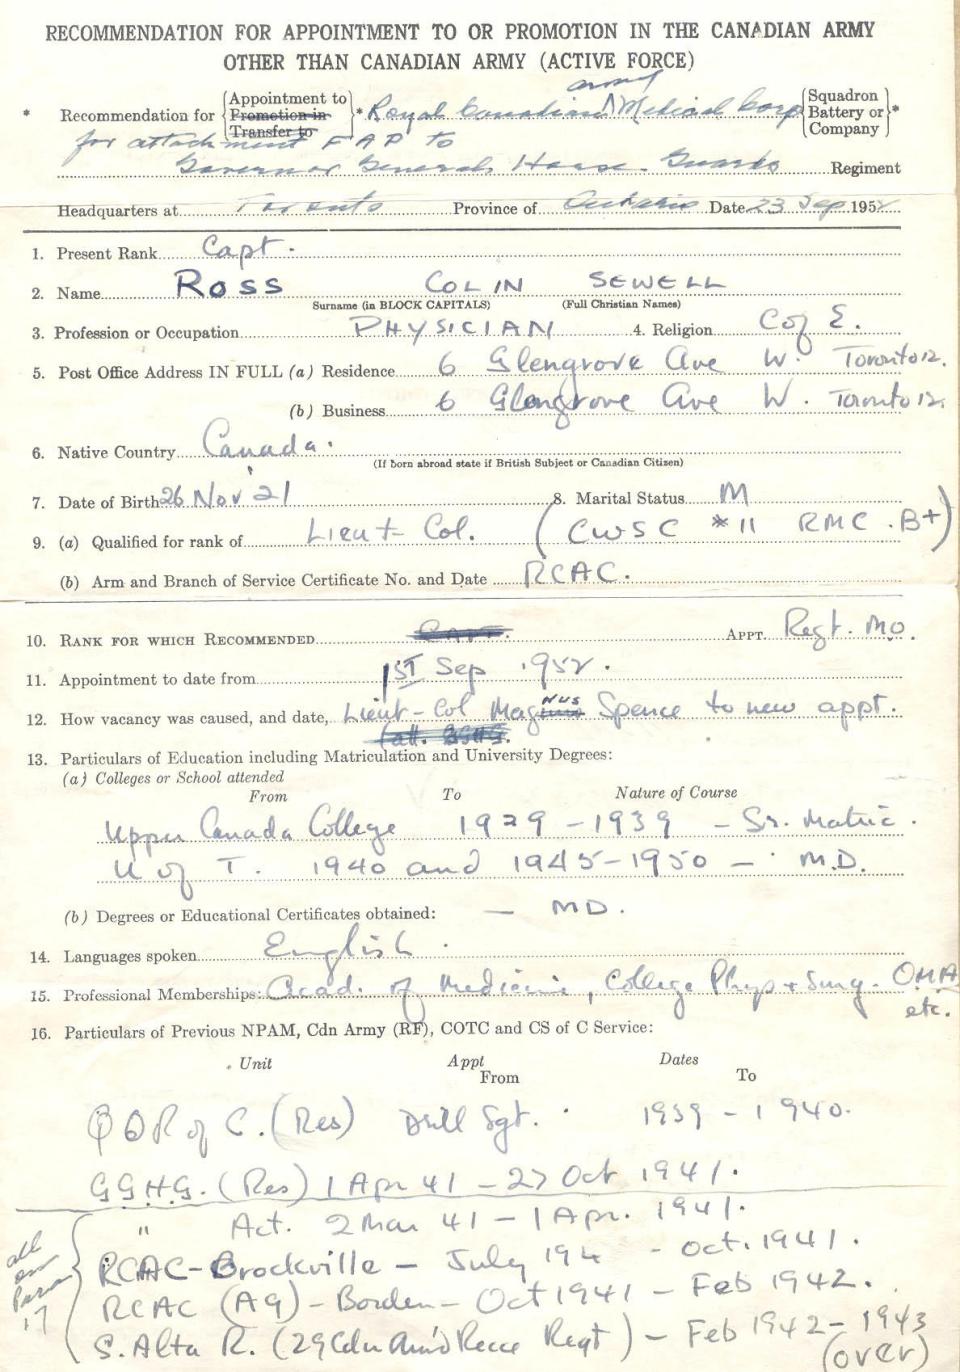 RECOMMENDATION FOR APPOINTMENT TO OR PROMOTION IN THE CANADIAN ARMY
OTHER THAN CANADIAN ARMY (ACTIVE FORCE)
* Recommendation for {Appointment to Promotion in Transfer to}* Royal Canadian army Medical Corp {Squadron Battery or Company}*
for attachment F A P to
Governor Generals Horse Guards Regiment
Headquarters at Toronto Province of Ontario Date 23 Sep 1952
1. Present Rank Capt.
2. Name ROSS COLIN SEWELL
Surname (in BLOCK CAPITALS) (Full Christian Names)
3. Profession or Occupation PHYSICIAN 4. Religion C of E.
5. Post Office Address IN FULL (a) Residence 6 Glengrove Ave W. Toronto 12.
(b) Business 6 Glengrove Ave W. Toronto 12.
6. Native Country Canada.
(If born abroad state if British Subject or Canadian Citizen)
7. Date of Birth 26 Nov 21 8. Marital Status M
9. (a) Qualified for rank of Lieut-Col. (CWSC *11 RMC. B+)
(b) Arm and Branch of Service Certificate No. and Date RCAC.
10. RANK FOR WHICH RECOMMENDED Capt. APPT. Regt. M.O.
11. Appointment to date from 1ST Sep 1952.
12. How vacancy was caused, and date, Lieut-Col Magnus Spence to new appt.
(att. GGHG.
13. Particulars of Education including Matriculation and University Degrees:
(a) Colleges or School attended
From To Nature of Course
Upper Canada College 1929-1939 - Sr. Matric.
U of T. 1940 and 1945-1950 - M.D.
(b) Degrees or Educational Certificates obtained: - MD.
14. Languages spoken English.
15. Professional Memberships: Acad. of Medicine, College Phys + Surg. OMA
etc.
16. Particulars of Previous NPAM, Cdn Army (RF), COTC and CS of C Service:
Unit Appt Dates
From To
Q O R of C. (Res) Drill Sgt. 1939-1940.
G G H G. (Res) 1 Apr 41 - 27 Oct 1941.
" Act. 2 Mar 41 - 1 Apr. 1941.
RCAC-Brockville - July 194 - Oct. 1941.
all on Para 17
RCAC (A9) - Borden - Oct 1941 - Feb 1942.
S. Alta R. (29 Cdn Arm'd Recce Regt) - Feb 1942-1943
(over)